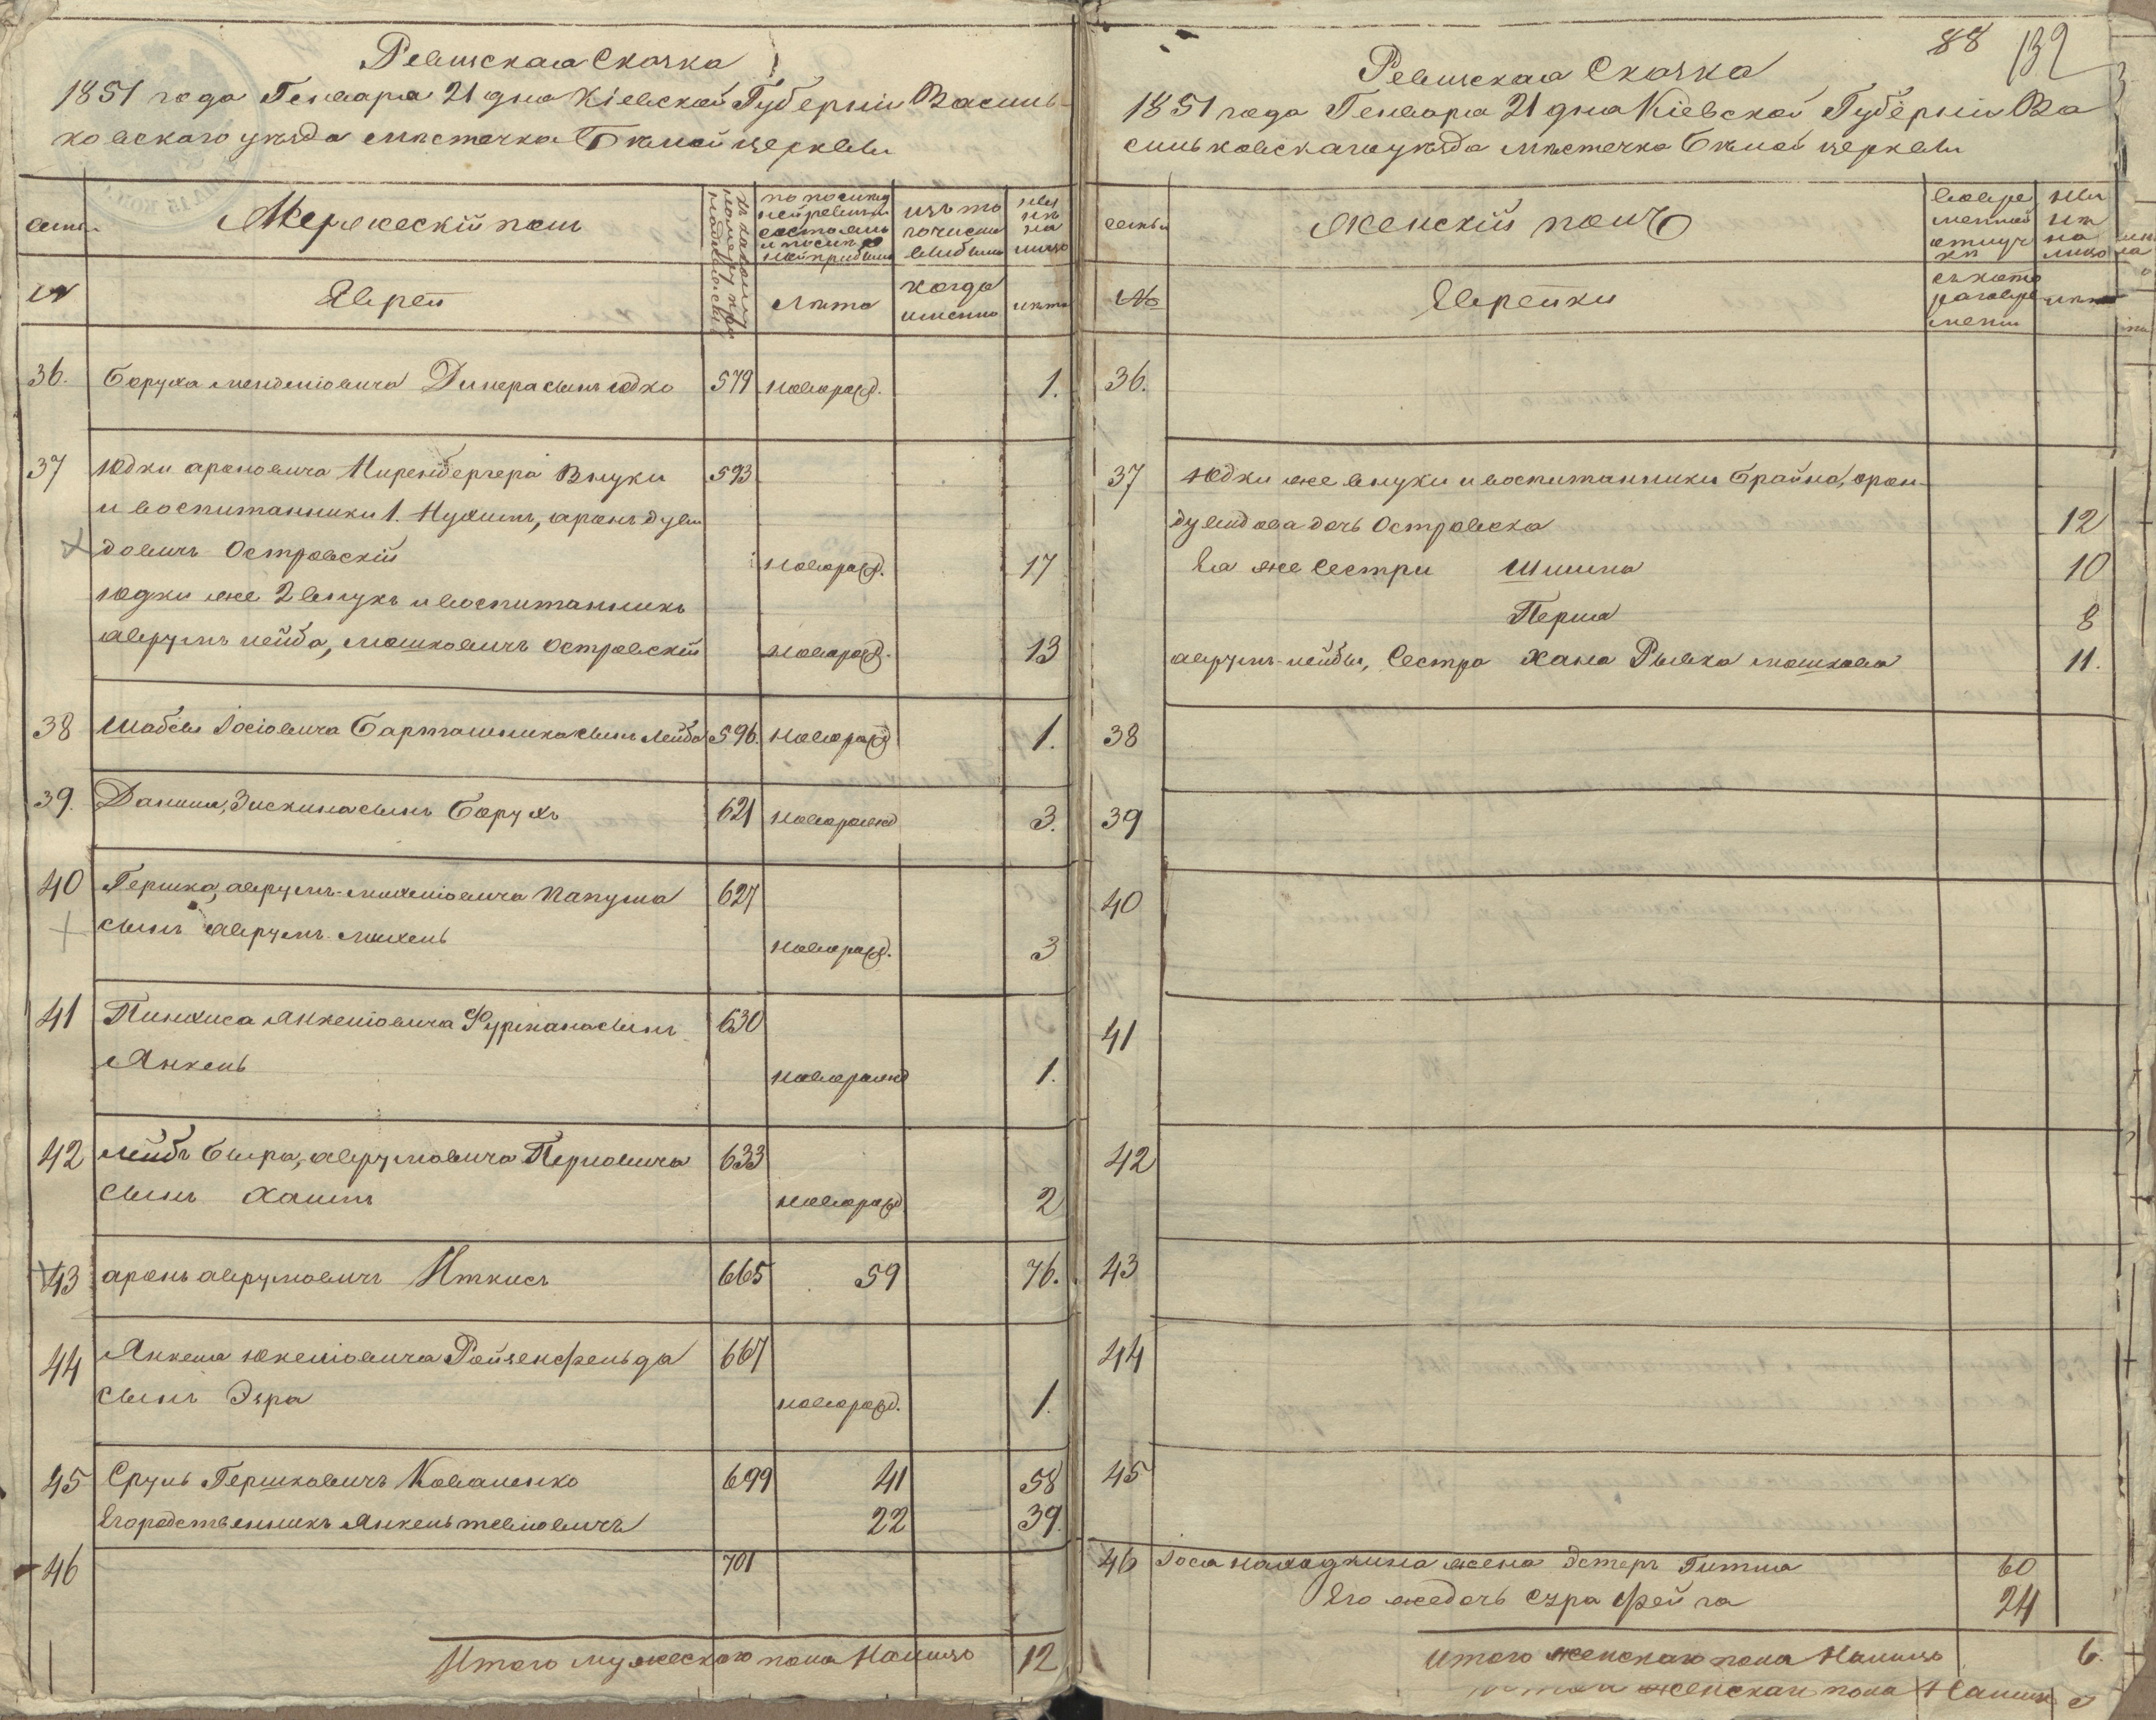 Ревизская Сказка
1851 года Генваря 21 дня Кіевской Губерніи Василь
ковскаго уѣзда мѣстечка Бѣлой церкви
семьи
Мужескій полъ
по послед
ней ревизіи
состояло
и после
ней прибыло
изъ то
го числа
выбыло
ныне
на
лицо
№
Евреи
лѣта
когда
именно
лѣта
36. Боруха Менделіовича Динера сынъ Юдко 579 новорожд. 1.
37 Юдки Ароновича Миренбергера Внуки 593
и воспитанники 1. Нухимъ, аронъ дуви
довичъ Островскій новорожд. 17
Юдки же 2 внукъ и воспитанникъ
аврумъ лейба, мошковичъ островскій новорожд. 13
38 Шабсы Іосіовича Барташника сынъ лейба 596. новорожд 1.
39. Данила, Зискина сынъ Борухъ 621 новорожд 3.
40 Гершка, аврумъ-михеліовича Папуша 627
сынъ аврумъ михель новорожд. 3
41 Пинхиса Янкеліовича Фурмана сынъ 630
Янкель новорожд 1.
42 лейбъ Бера, аврумовича Перловича 633
сынъ Хаимъ новорожд 2
43 аронъ аврумовичъ Иткисъ 665 59 76.
44 Янкеля Юкеліовича Ройзенфельда 667
сынъ Эзра новорожд. 1.
45 Сруль Гершковичъ Коваленко 699 41 58
Его родственникъ Янкель тевіовичъ 22 39.
46 701
Итого мужескаго пола Налицо 12
88 132
Ревизская Сказка
1851 года Генваря 21 дня Кіевской Губерніи Ва
сильковскаго уѣзда мѣстечка Бѣлой церкви
семьи
Женскій полъ
во вре
менной
отлуч
ки
ны
нѣ
на
лицо
№
Еврейки
съ кото
раго вре
мени
лѣта
36.
37 Юдки же внуки и воспитанники Брайна, арон
дувидова дочь Островска 12
Ея же Сестри Шишна 10
Перша 8
аврумъ-лейбы, Сестра Хана Рывка мошкова 11.
38
39
40
41
42
43
44
45
46 Іося находкина жена Эстеръ Гитля 60
Его же дочь Сура Фейга 24
Итого женскаго пола Налицо 6.
женскаго пола Налицо